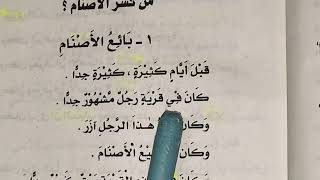 مَنْ كَسَّرَ الأَصْنَامَ ؟
١ - بَائِعُ الأَصْنَامِ
قَبْلَ أَيَّامٍ كَثِيرَةٍ ، كَثِيرَةٍ جِدًّا .
كَانَ فِي قَرْيَةٍ رَجُلٌ مَشْهُورٌ جِدًّا .
وَكَانَ هٰذَا الرَّجُلِ آزَرَ .
وَكَانَ الأَصْنَامَ .